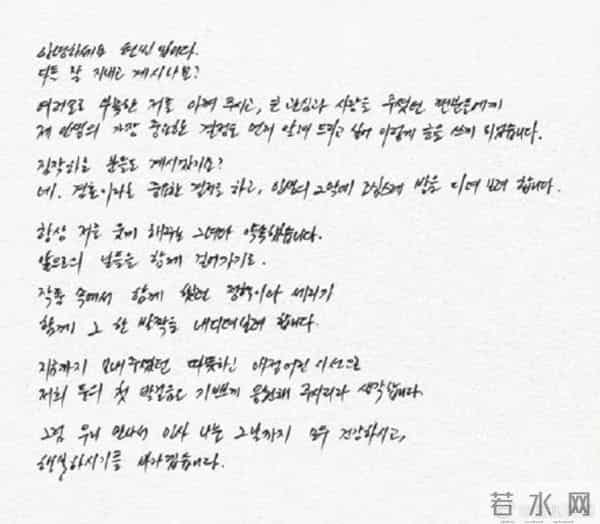 안녕하세요 현빈입니다.
다들 잘 지내고 계시나요?
여러모로 부족한 저를 아껴 주시고, 큰 관심과 사랑을 주셨던 팬분들에게
제 인생의 가장 중요한 결정을 먼저 알려 드리고 싶어 이렇게 글을 쓰게 되었습니다.
짐작하실 분들도 계시겠지요?
네. 결혼이라는 중요한 결정을 하고, 인생의 2막에 조심스레 발을 디뎌 보려 합니다.
항상 저를 웃게 해주는 그녀와 약속했습니다.
앞으로의 날들을 함께 걸어가기로.
작품 속에서 함께 했던 정혁이와 세리가
함께 그 한 발짝을 내디뎌보려 합니다.
지금까지 보내주셨던 따뜻하신 애정어린 시선으로
저희 둘의 첫 발걸음도 기쁘게 응원해 주시리라 생각합니다.
그럼 우리 만나서 인사 나눌 그날까지 모두 건강하시고,
행복하시기를 바라겠습니다.
若水网